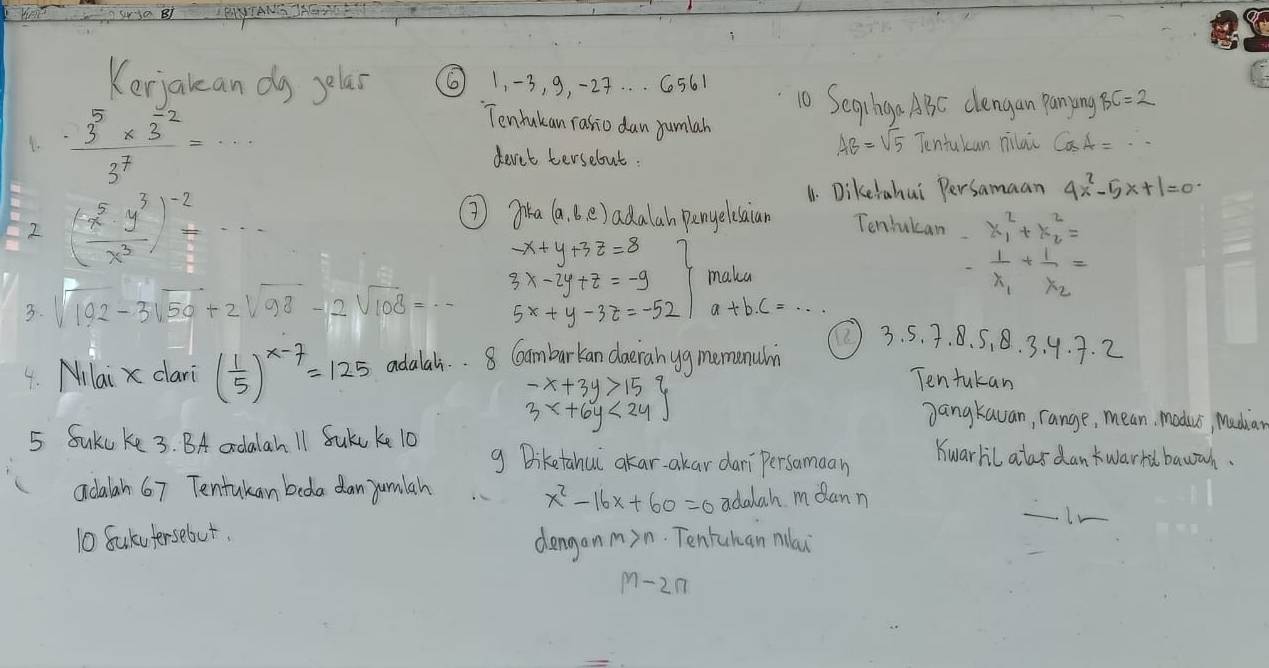 BJ BINTANG
Kerjakan dg jelas
1. 3^5 × 3^-2 / 3^7 = ...
2 (x^5 . y^3 / x^3)^-2 = ...
3. √192 - 3√50 + 2√98 - 2√108 = ..
4. Nilai x dari (1/5)^x-7 = 125 adalah..
5 Suku ke 3. BA adalah 11 Suku ke 10
adalah 67 Tentukan beda dan jumlah
10 Suku tersebut.
6 1, -3, 9, -27 ... 6561
Tentukan rasio dan jumlah
deret tersebut.
7 Jika (a, b, c) adalah penyelesaian
-x + y + 3z = 8
3x - 2y + z = -9 } maka
5x + y - 3z = -52 a + b.c = ...
8 Gambarkan daerah yg memenuhi
-x + 3y > 15
3x + 6y < 24 }
9 Diketahui akar-akar dari persamaan
x^2 - 16x + 60 = 0 adalah m dan n
dengan m > n. Tentukan nilai
m - 2n
10 Segitiga ABC dengan panjang BC = 2
AB = √5 Tentukan nilai Cos A = ...
11. Diketahui Persamaan 4x^2 - 5x + 1 = 0.
Tentukan - x1^2 + x2^2 =
- 1/x1 + 1/x2 =
12 3.5.7.8.5,8.3.4.7.2
Tentukan
Jangkauan, range, mean. modus, Median
Kwartil atas dan kwartil bawah.